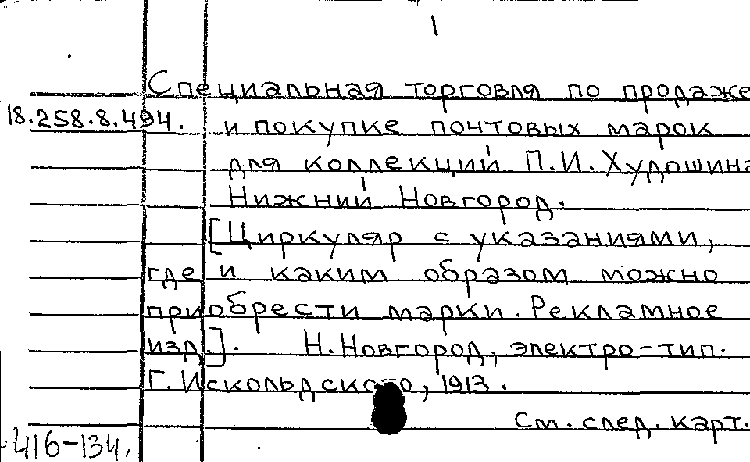 1
Специальная торговля по продаже
18.258.8.494. и покупке почтовых марок
для коллекций П.И.Худошина
Нижний Новгород.
[Циркуляр с указаниями,
где и каким образом можно
приобрести марки. Рекламное
изд.]. Н.Новгород, электро-тип.
Г. Искольдского, 1913.
См. след. карт.
416-134.